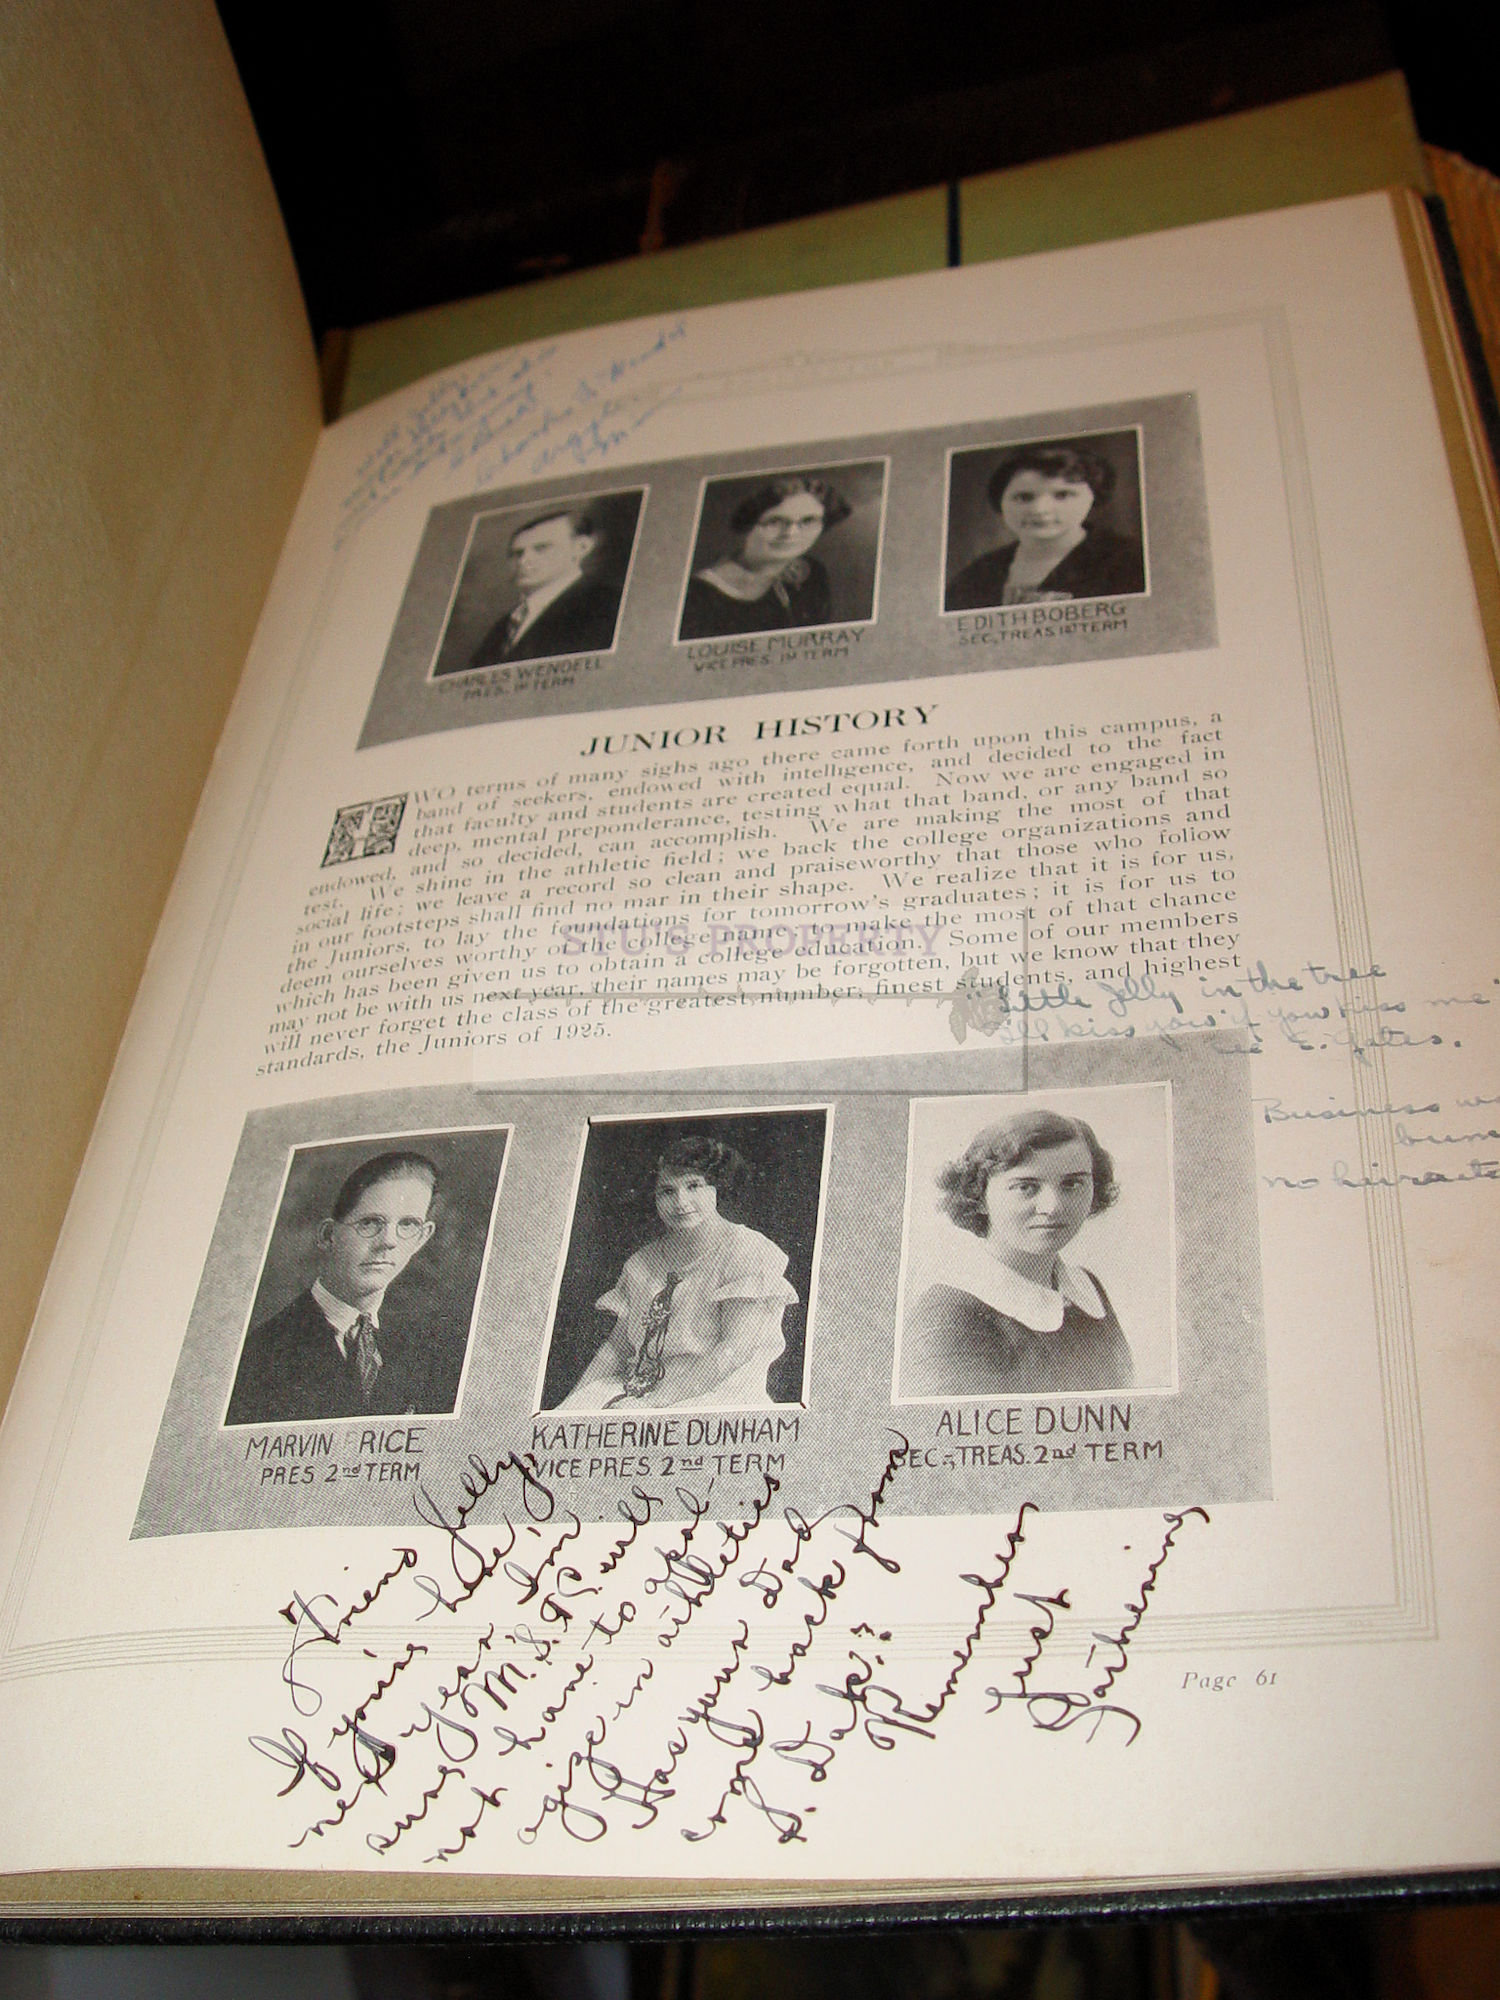 CHARLES WENDELL
PRES. 1st TERM
LOUISE MURRAY
VICE PRES. 1st TERM
EDITH BOBERG
SEC, TREAS 1st TERM
JUNIOR HISTORY
TWO terms of many sighs ago there came forth upon this campus, a
band of seekers, endowed with intelligence, and decided to the fact
that faculty and students are created equal. Now we are engaged in
deep, mental preponderance, testing what that band, or any band so
endowed, and so decided, can accomplish. We are making the most of that
test. We shine in the athletic field; we back the college organizations and
social life; we leave a record so clean and praiseworthy that those who follow
in our footsteps shall find no mar in their shape. We realize that it is for us,
the Juniors, to lay the foundations for tomorrow's graduates; it is for us to
deem ourselves worthy of the college name, to make the most of that chance
which has been given us to obtain a college education. Some of our members
may not be with us next year, their names may be forgotten, but we know that they
will never forget the class of the greatest number, finest students, and highest
standards, the Juniors of 1925.
STU'S PROPERTY
"Little Jelly in the tree
I'll kiss you if you kiss me"
E. Gates.
Business
no
MARVIN RICE
PRES 2nd TERM
KATHERINE DUNHAM
VICE PRES. 2nd TERM
ALICE DUNN
SEC-TREAS. 2nd TERM
Friend Jelly,
If you're here
next year I'm
sure M.S.T. will
not have to apol-
ogize in athletics
Has your Dad
come back from
S. Dak.??
Remember
Just
Katherine
Page 61